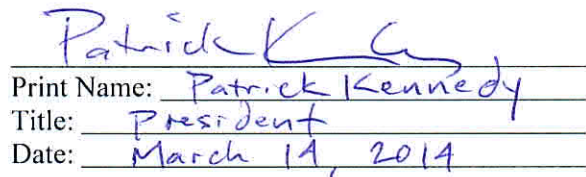 Patrick K
Print Name: Patrick Kennedy
Title: President
Date: March 14, 2014